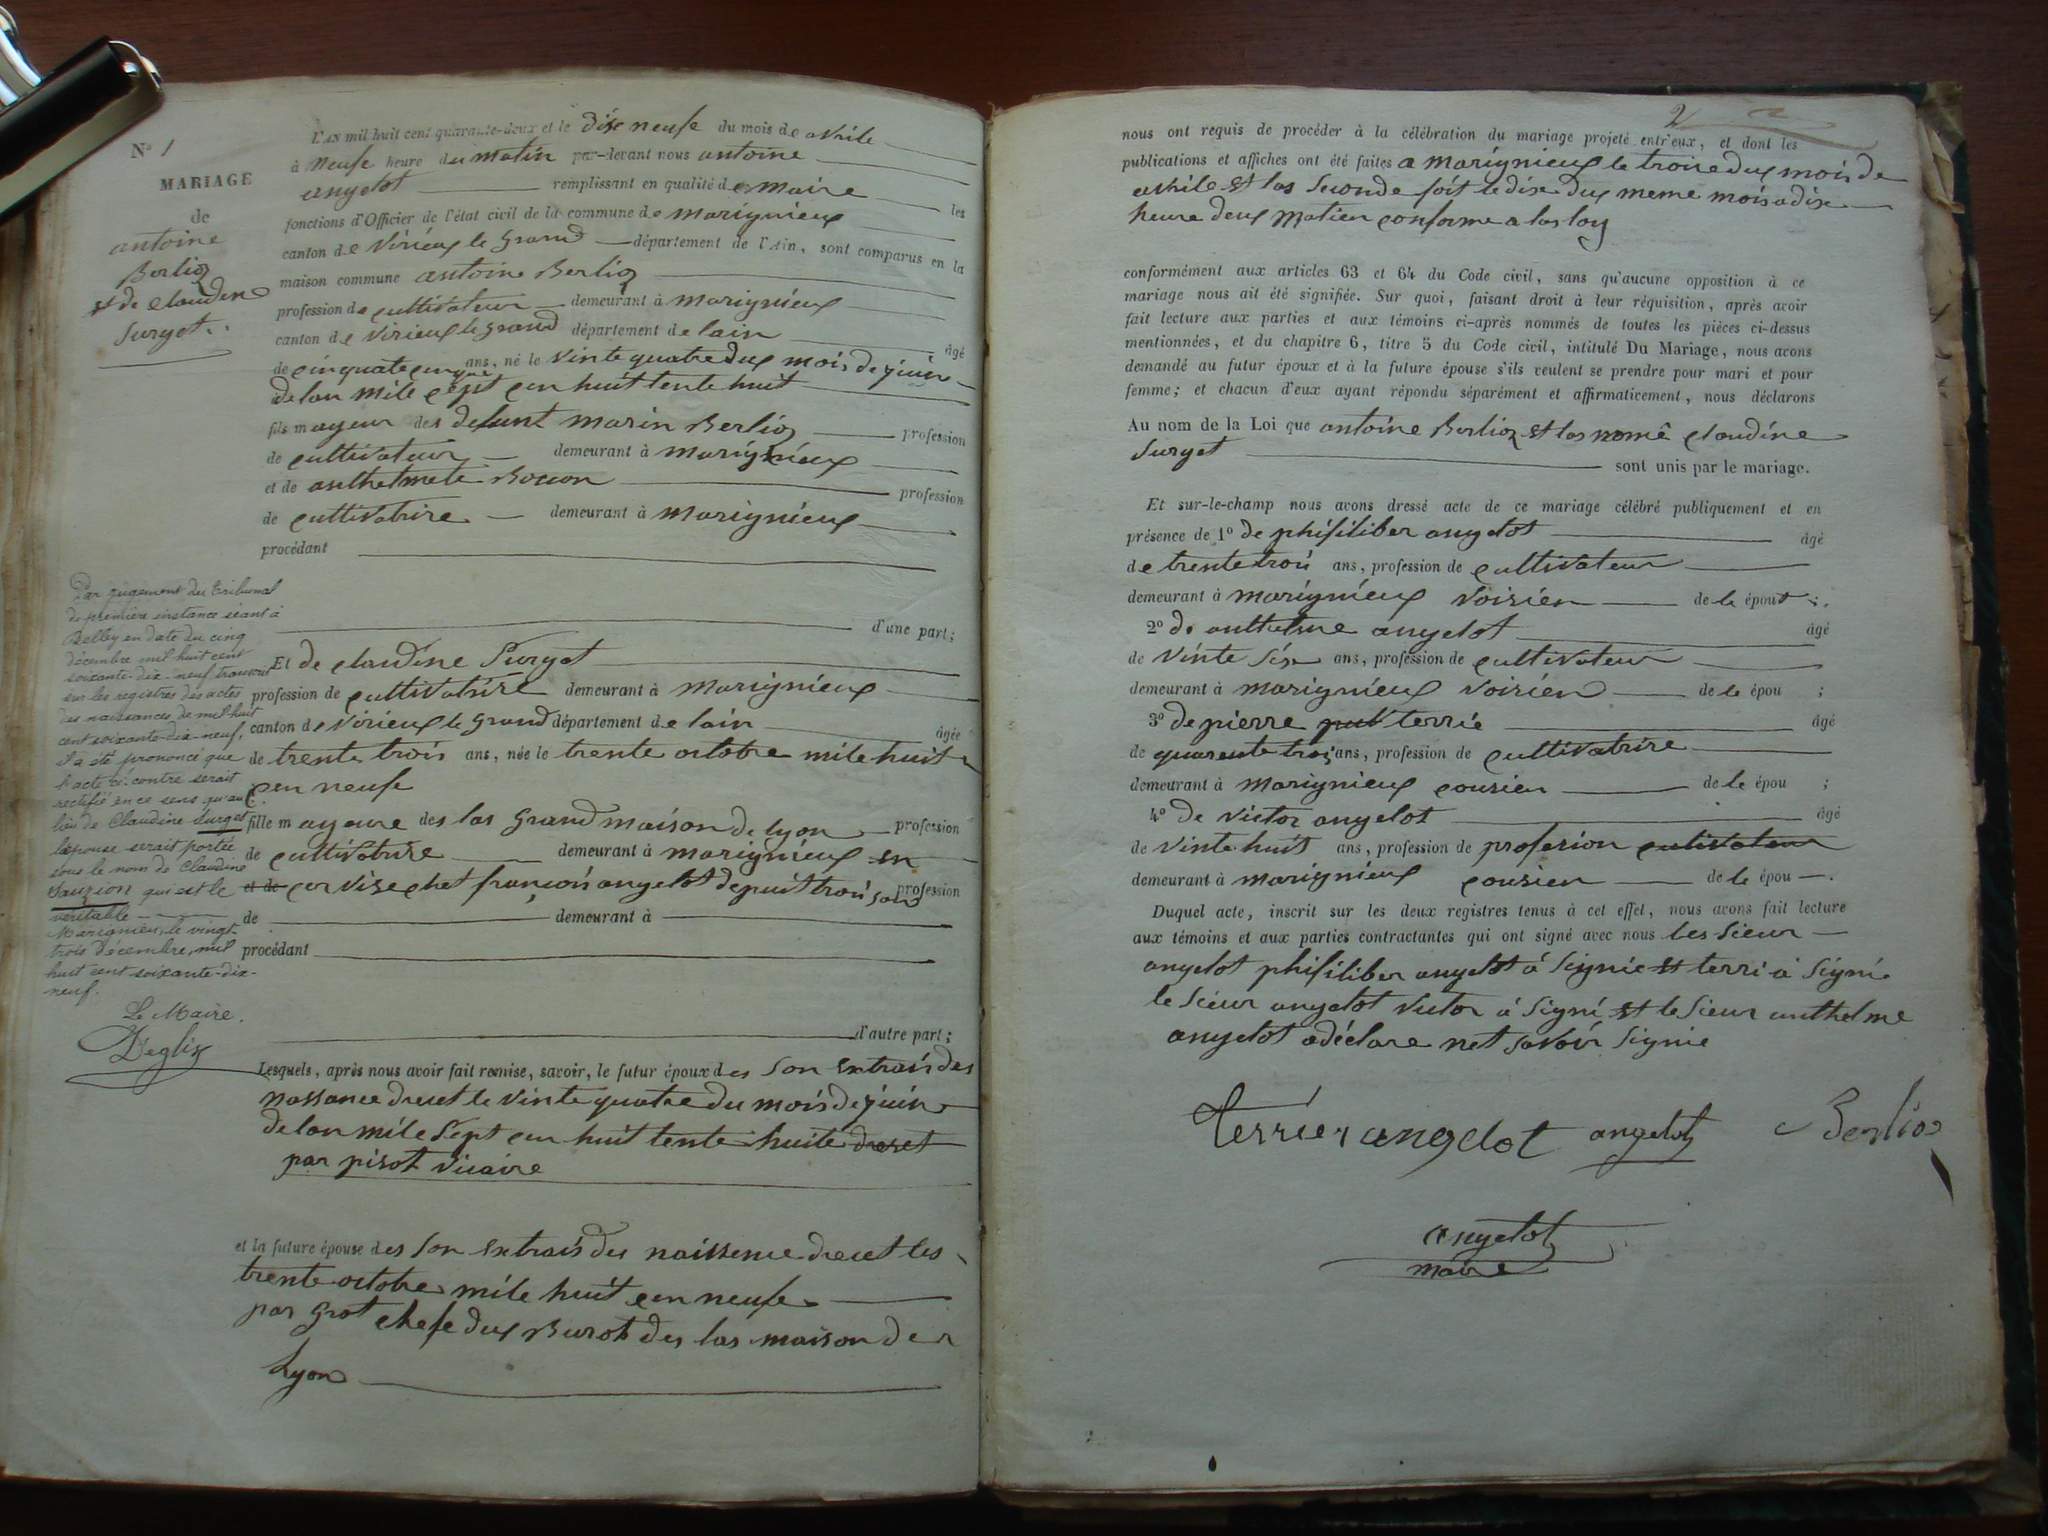 N° 1
MARIAGE
de
antoine
Berlioz
et de claudine
Surget.
L'AN mil huit cent quarante-deux et le dixe neufe du mois de avrile
à neufe heure du matin par-devant nous antoine
angelot remplissant en qualité de maire les
fonctions d'Officier de l'état civil de la commune de marignieux
canton de virieux le grand département de l'Ain, sont comparus en la
maison commune antoine Berlioz
profession de cultivateur demeurant à marignieux
canton de virieux le grand département de lain âgé
de cinquate cinque ans, né le vinte quatre dux mois de jiuin
de lan mile cept cen huit tente huit
fils mayeur des defunt marin Berlioz profession
de cultivateur demeurant à marignieux
et de anthelmete Bocion profession
de cultivatrire demeurant à marignieux
procédant
d'une part;
Et de claudine Surget
profession de cultivatrire demeurant à marignieux
canton de virieux le grand département de lain âgée
de trente trois ans, née le trente octobre mile huit
cen neufe
fille mayeure des las grand maison de lyon profession
de cultivatrire demeurant à marignieux en
et de cervise chet françois angelot depuit trois profession
de demeurant à
procédant
d'autre part;
Par jugement du tribunal
de première instance séant à
Belley en date du cinq
décembre mil huit cent
soixante-dix-neuf transcrit
sur les registres des actes
des naissances de mil huit
cent soixante-dix-neuf,
il a été prononcé que
l'acte ci-contre serait
rectifié en ce sens qu'au
lieu de Claudine Surget
l'épouse serait portée
sous le nom de Claudine
Sauzion qui est le
véritable
Marignieu, le vingt
trois décembre, mil
huit cent soixante-dix-
neuf.
Le Maire.
Deglix
Lesquels, après nous avoir fait remise, savoir, le futur époux des son extrais des
nassance drecet le vinte quatre du mois de jiuin
de lan mile sept cen huit tente huite drecet
par pisot vicaire
et la future épouse des son extrais des naissence drecet les
trente octobre mile huit cen neufe
par grot chefe dux Burot des las maison der
Lyon
2
nous ont requis de procéder à la célébration du mariage projeté entr'eux, et dont les
publications et affiches ont été faites a marignieux le troire dux mois de
avrile et las seconde foit le dixe dux meme mois a dixe
heure deux matien conforme a las loy
conformément aux articles 63 et 64 du Code civil, sans qu'aucune opposition à ce
mariage nous ait été signifiée. Sur quoi, faisant droit à leur réquisition, après avoir
fait lecture aux parties et aux témoins ci-après nommés de toutes les pièces ci-dessus
mentionnées, et du chapitre 6, titre 5 du Code civil, intitulé Du Mariage, nous avons
demandé au futur époux et à la future épouse s'ils veulent se prendre pour mari et pour
femme; et chacun d'eux ayant répondu séparément et affirmativement, nous déclarons
Au nom de la Loi que antoine Berlioz et las nomé claudine
Surget sont unis par le mariage.
Et sur-le-champ nous avons dressé acte de ce mariage célébré publiquement et en
présence de 1° de phisiliber angelot âgé
de trente trois ans, profession de cultivateur
demeurant à marignieux voisien de le épou
2° de anthelme angelot âgé
de vinte sixe ans, profession de cultivateur
demeurant à marignieux voisien de le épou ;
3° de pierre terrie âgé
de quarente trois ans, profession de cultivatrire
demeurant à marignieux cousien de le épou ;
4° de victor angelot âgé
de vinte huit ans, profession de profesion cultivateur
demeurant à marignieux cousien de le épou .
Duquel acte, inscrit sur les deux registres tenus à cet effet, nous avons fait lecture
aux témoins et aux parties contractantes qui ont signé avec nous les sieur
angelot phisiliber angelot à signie et terri à signi
le sieur angelot victor à signi et le sieur anthelme
angelot a déclare net savoir signie
terrier angelot angelot Berlioz
angelot
maire